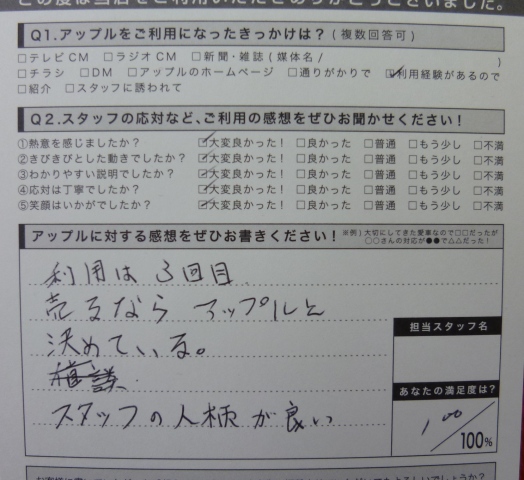 この度は当店をご利用いただきありがとうございました。
Q1.アップルをご利用になったきっかけは？(複数回答可)
□テレビCM □ラジオCM □新聞・雑誌(媒体名/ )
□チラシ □DM □アップルのホームページ □通りがかりで ☑利用経験があるので
□紹介 □スタッフに誘われて
Q2.スタッフの応対など、ご利用の感想をぜひお聞かせください！
①熱意を感じましたか？ ☑大変良かった！ □良かった □普通 □もう少し □不満
②きびきびとした動きでしたか？ ☑大変良かった！ □良かった □普通 □もう少し □不満
③わかりやすい説明でしたか？ ☑大変良かった！ □良かった □普通 □もう少し □不満
④応対は丁寧でしたか？ ☑大変良かった！ □良かった □普通 □もう少し □不満
⑤笑顔はいかがでしたか？ ☑大変良かった！ □良かった □普通 □もう少し □不満
アップルに対する感想をぜひお書きください！
※例)大切にしてきた愛車なので□□だったが
○○さんの対応が●●で△△だった！
利用は3回目
売るなら アップルと
決めている。
スタッフの人柄が良い
担当スタッフ名
あなたの満足度は？
100
100%